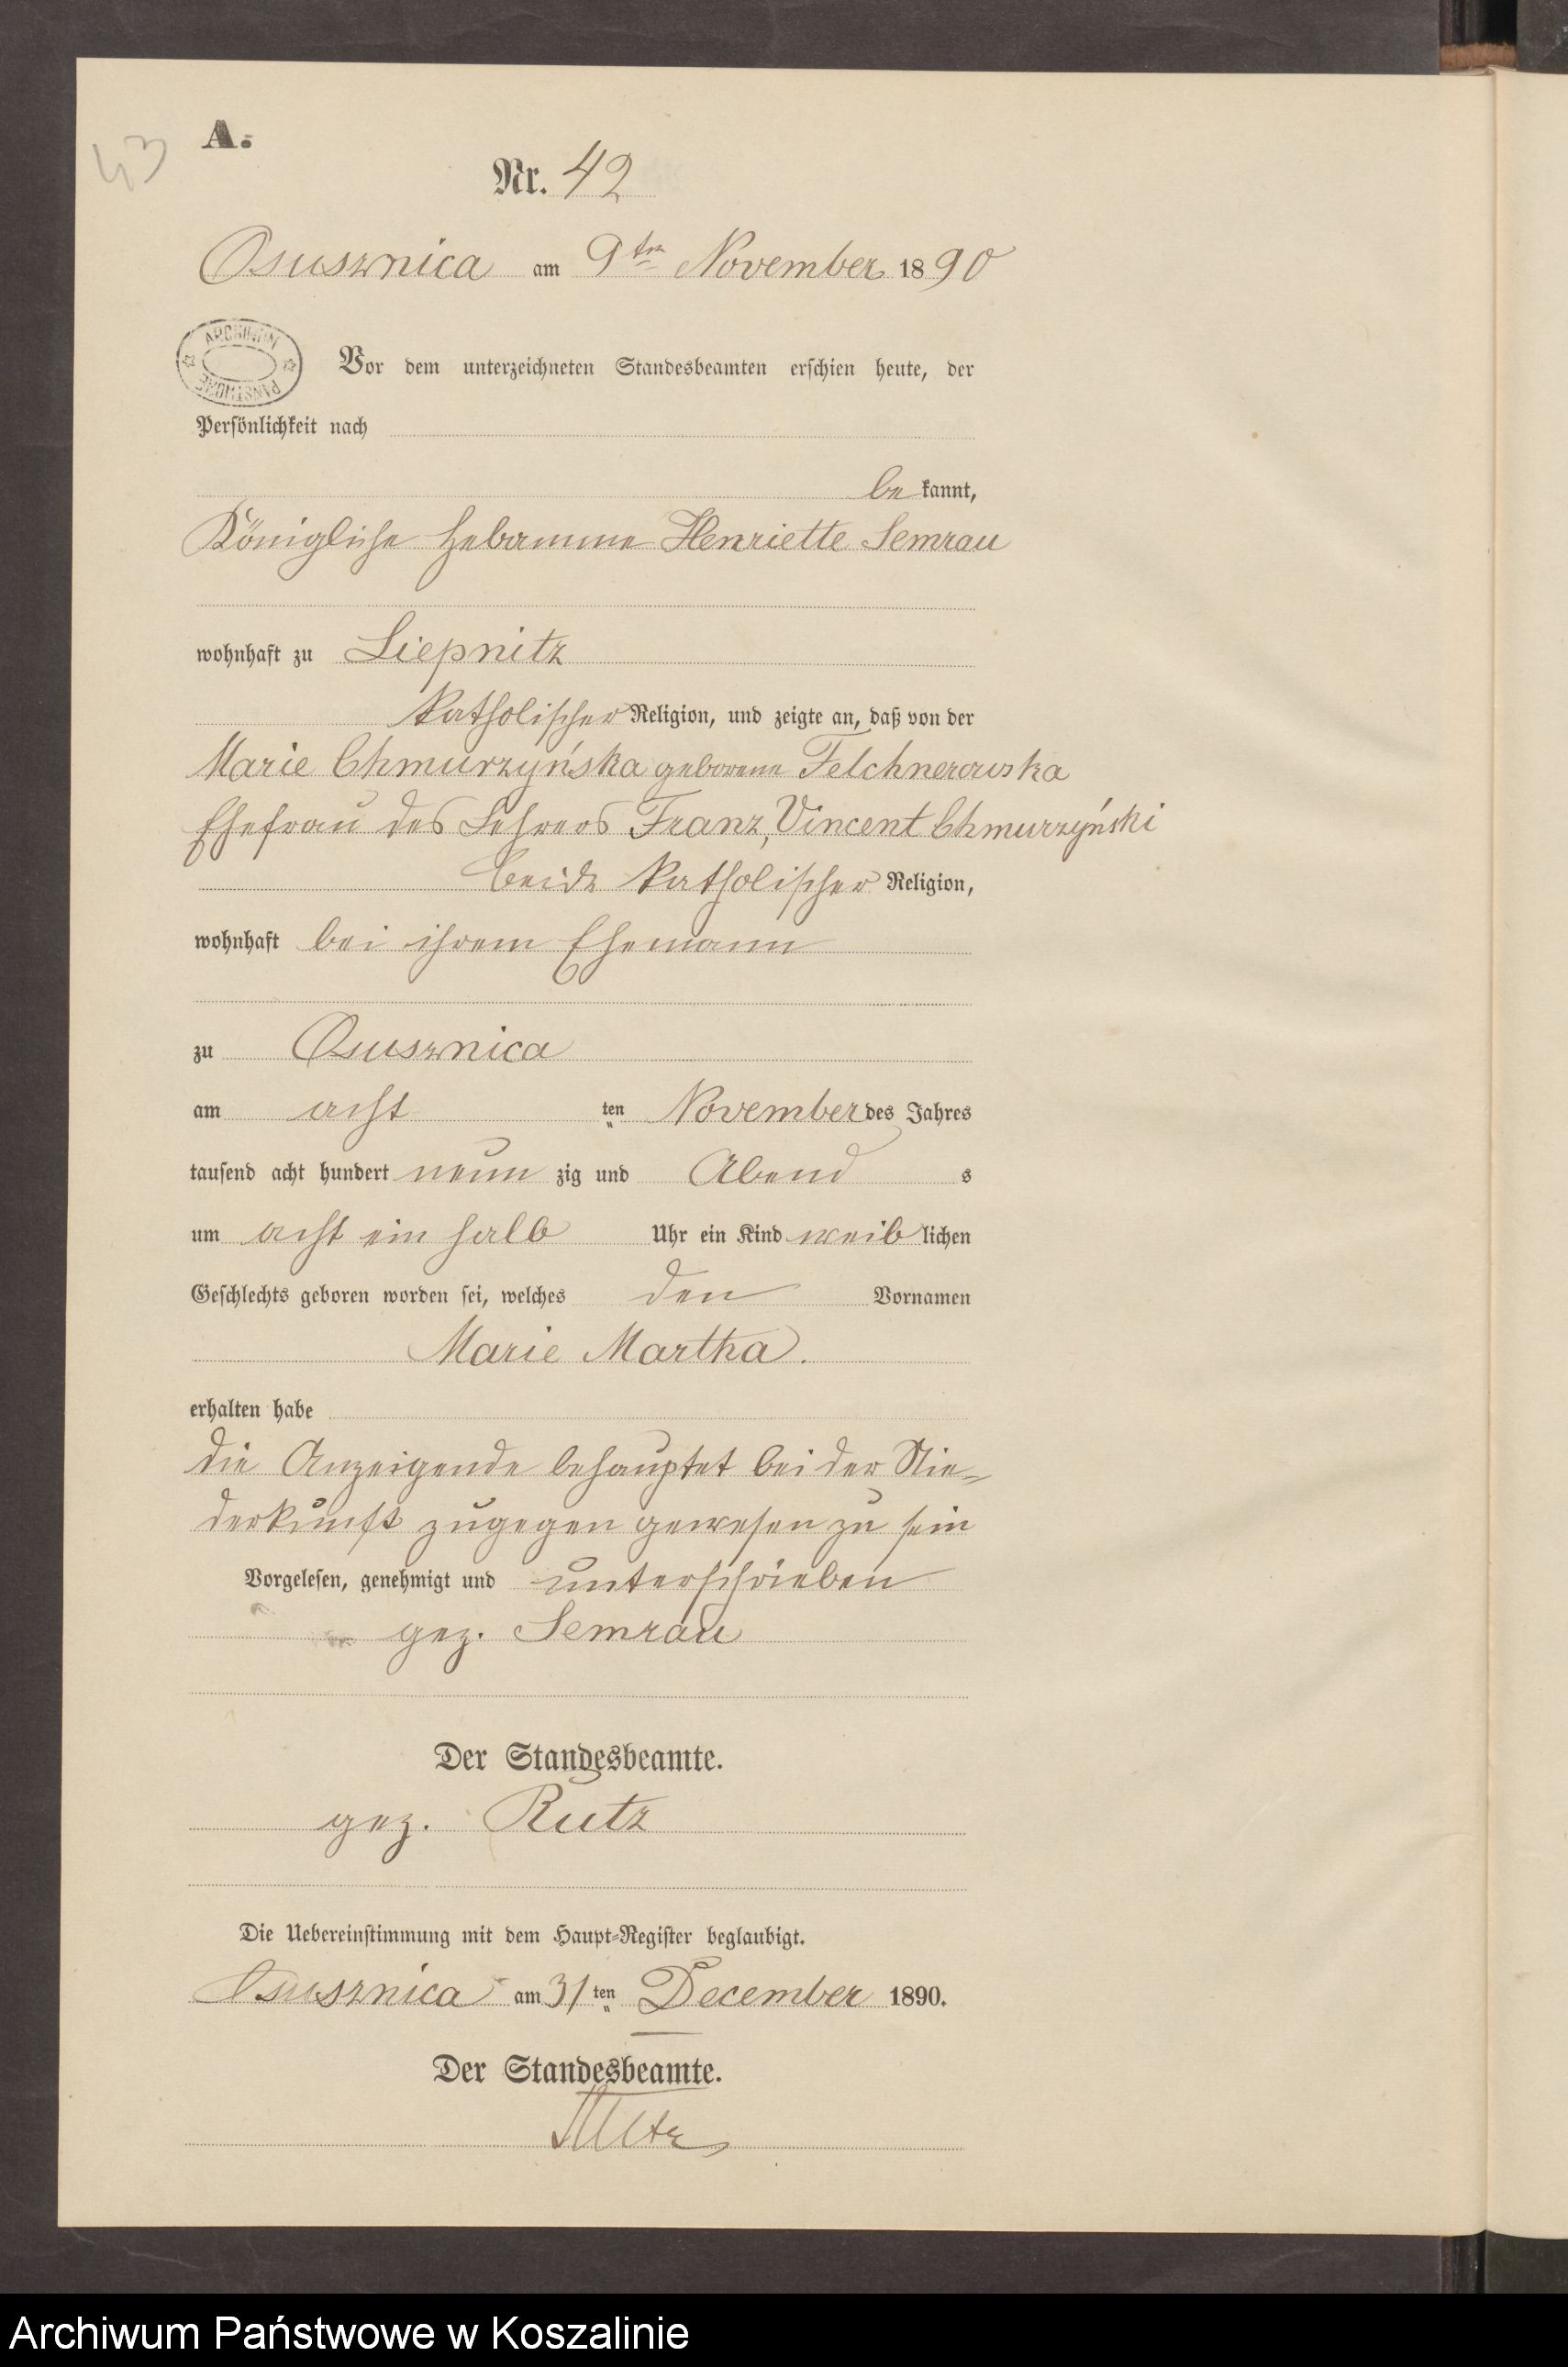 43
A.
Nr. 42
Osusznica am 9ten November 1890
ARCHIWUM PAŃSTWOWE
Vor dem unterzeichneten Standesbeamten erschien heute, der
Persönlichkeit nach
be kannt,
Königliche Hebamme Henriette Semrau
wohnhaft zu Liepnitz
katholischer Religion, und zeigte an, daß von der
Marie Chmurzyńska geborene Felchnerowska
Ehefrau des Lehrers Franz, Vincent Chmurzyński
beide katholischer Religion,
wohnhaft bei ihrem Ehemann
zu Osusznica
am acht ten November des Jahres
tausend acht hundert neun zig und Abend s
um acht ein halb Uhr ein Kind weib lichen
Geschlechts geboren worden sei, welches den Vornamen
Marie Martha.
erhalten habe
die Anzeigende behauptet bei der Nie-
derkunft zugegen gewesen zu sein
Vorgelesen, genehmigt und unterschrieben
gez. Semrau
Der Standesbeamte.
gez. Rutz
Die Uebereinstimmung mit dem Haupt-Register beglaubigt.
Osusznica am 31 ten December 1890.
Der Standesbeamte.
Rutz
Archiwum Państwowe w Koszalinie